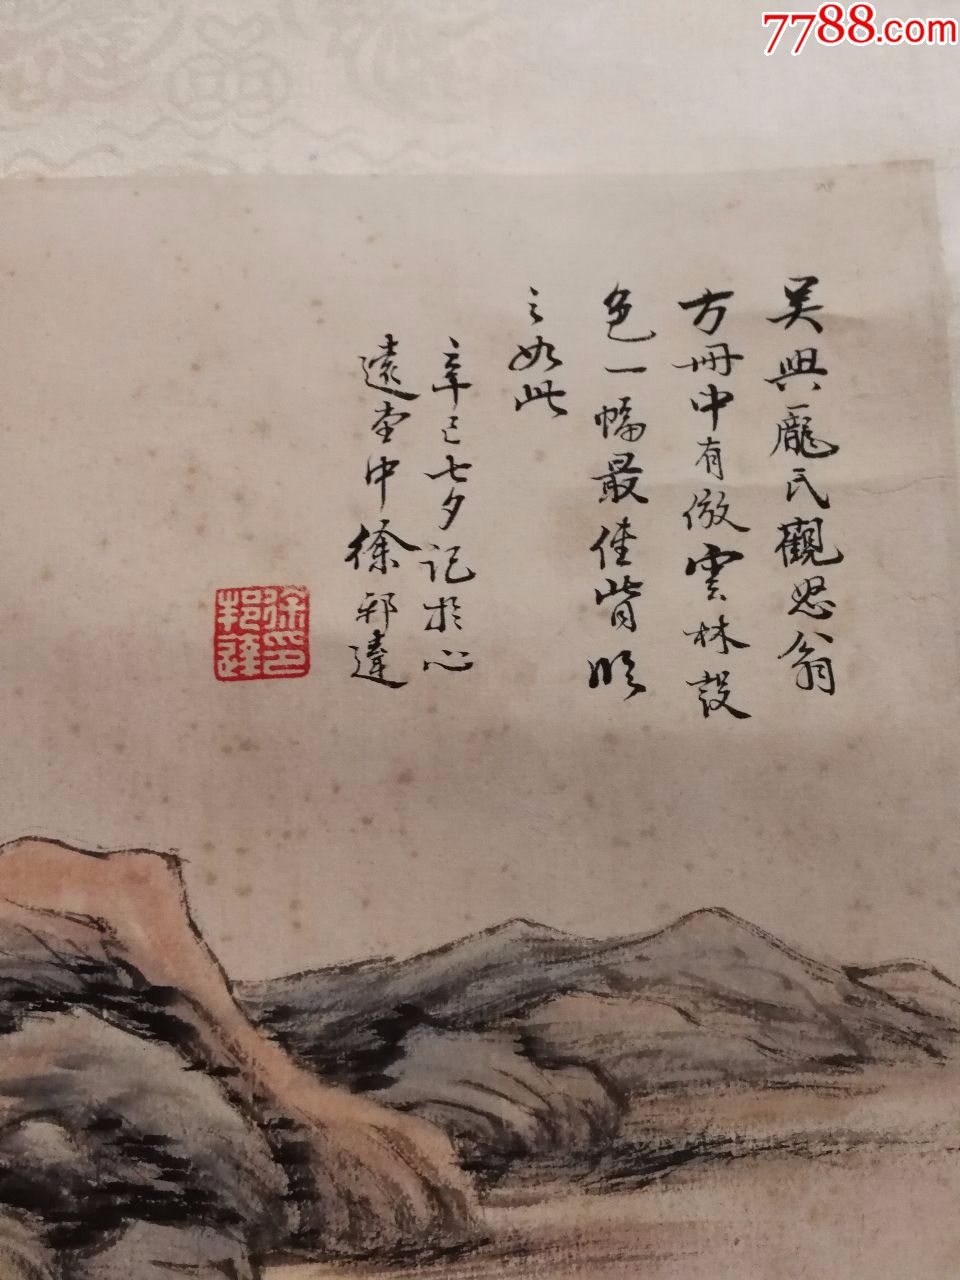 7788.com
吴興龐氏觀思翁
方冊中有倣雲林設
色一幅最佳背臨
之如此
辛巳七夕記於心
遠堂中徐邦達
徐印
邦達